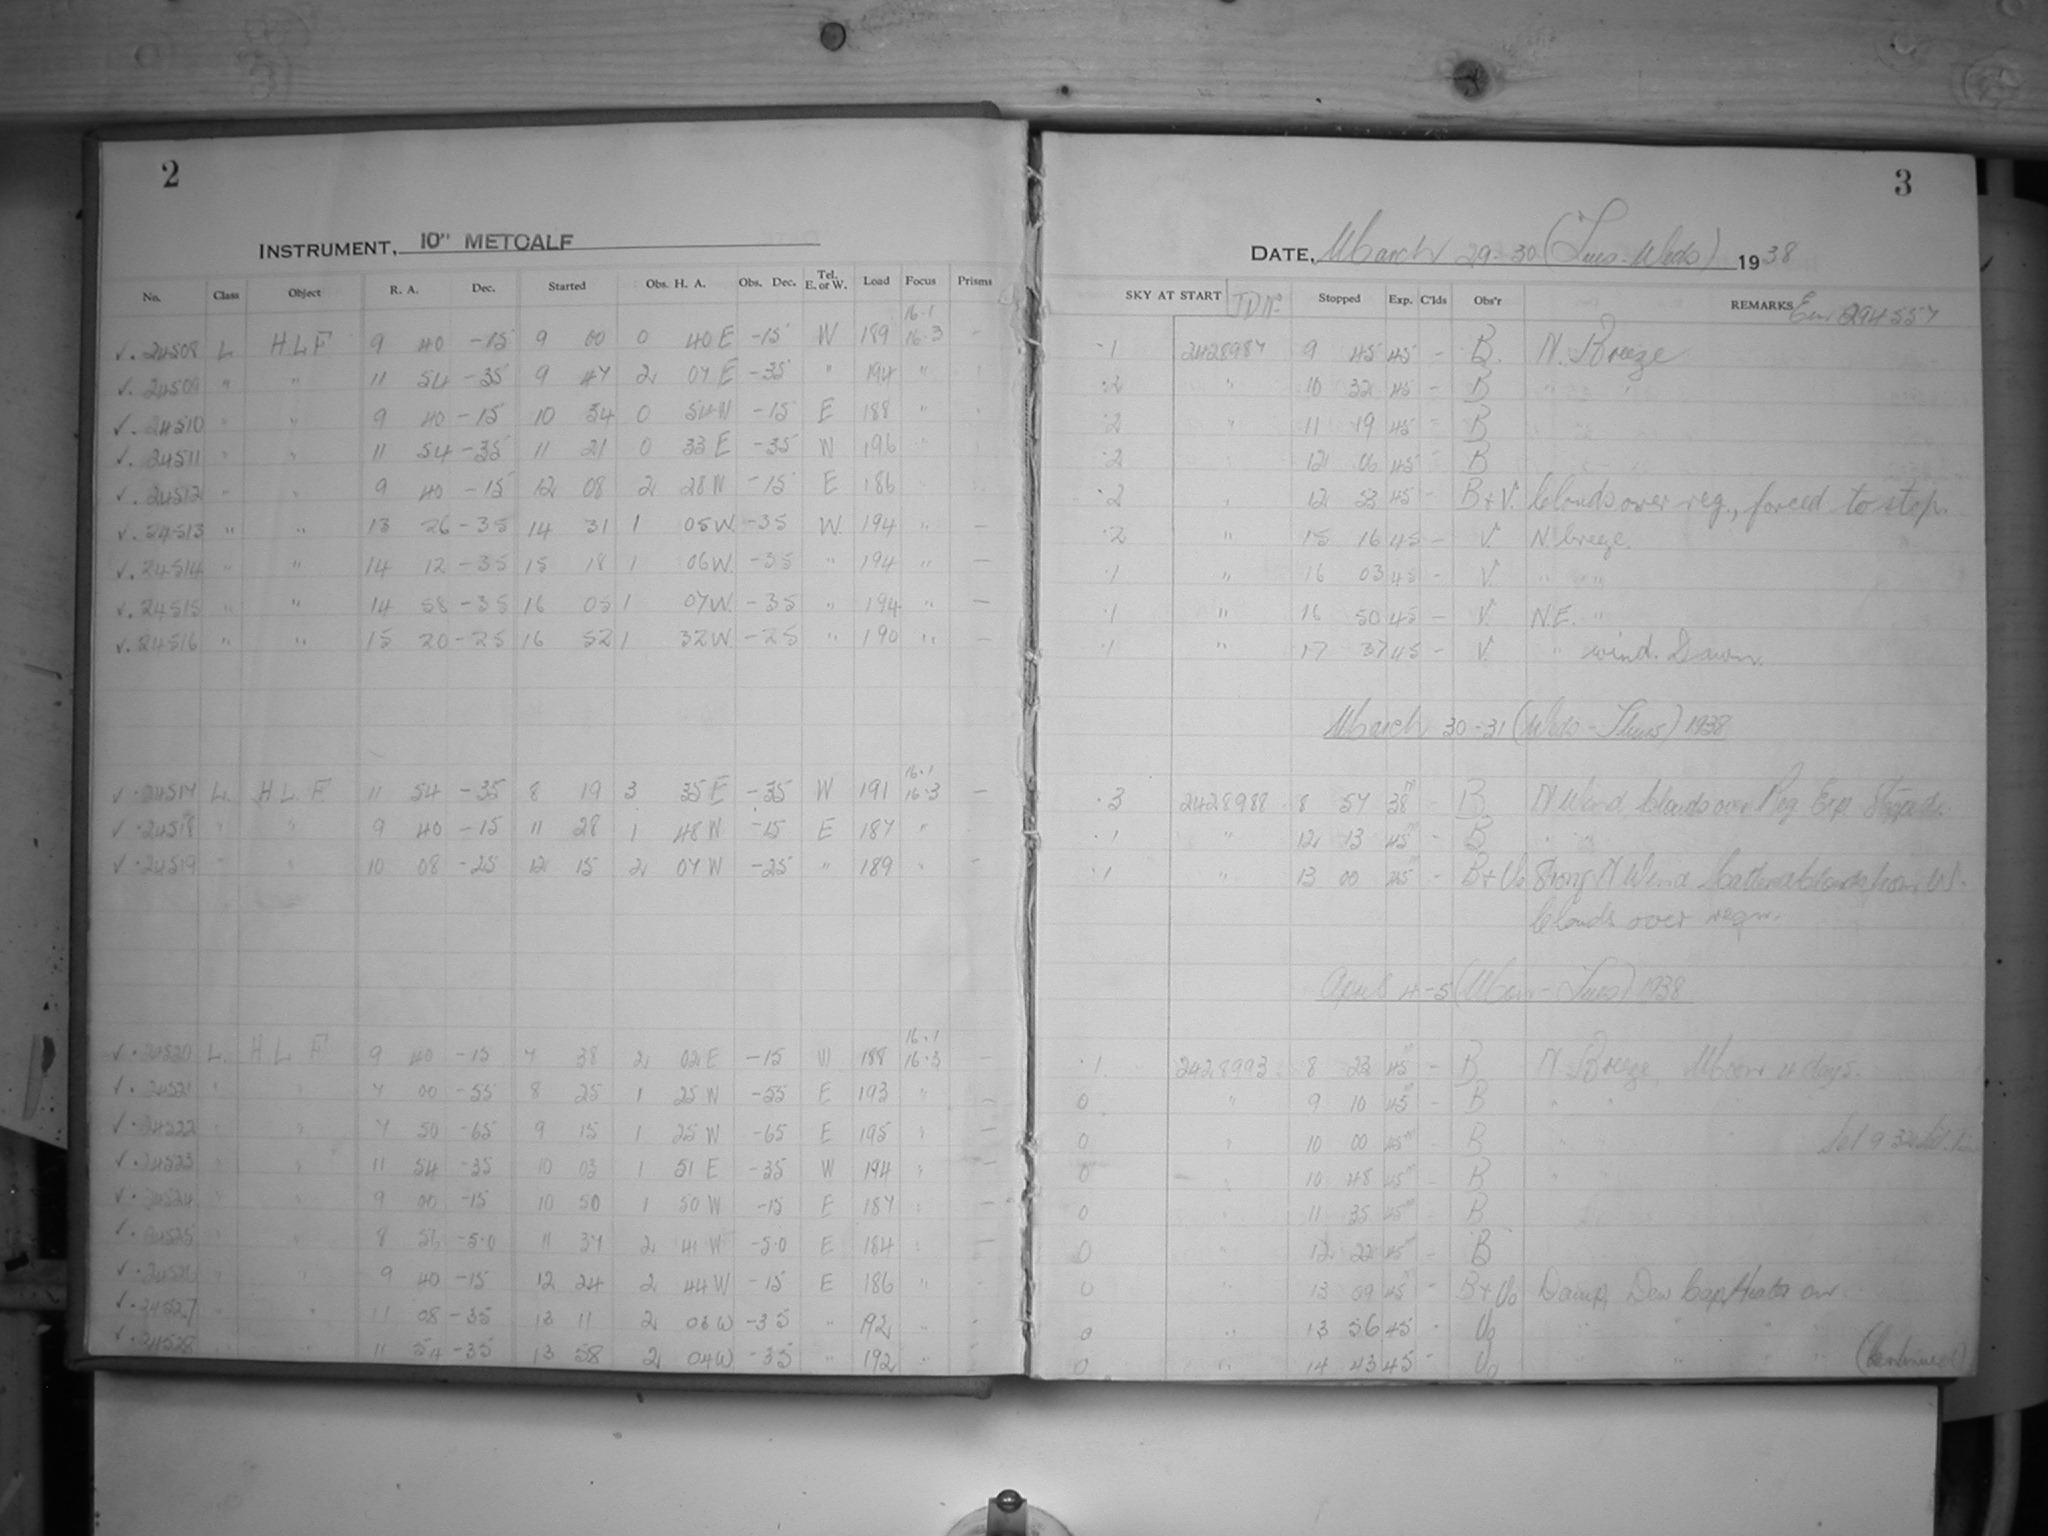 2
INSTRUMENT, 10" METCALF
No. Class Object R. A. Dec. Started Obs. H. A. Obs. Dec. Tel. E. or W. Load Focus Prisms
16.1
✓. 24508 L H L F 9 40 -15 9 00 0 40 E -15 W 189 16.3 -
✓. 24509 " " 11 54 -35 9 47 2 07 E -35 " 194 "
✓. 24510 " " 9 40 -15 10 34 0 54 W -15 E 188 "
✓. 24511 " " 11 54 -35 11 21 0 33 E -35 W 196
✓. 24512 " " 9 40 -15 12 08 2 28 W -15 E 186
✓. 24513 " " 13 26 -35 14 31 1 05 W. -35 W. 194 " -
✓. 24514 " " 14 12 -35 15 18 1 06 W. -35 " 194 " -
✓. 24515 " " 14 58 -35 16 05 1 07 W. -35 " 194 " -
✓. 24516 " " 15 20 -25 16 52 1 32 W. -25 " 190 " -
16.1
✓. 24517 L. H. L. F 11 54 -35 8 19 3 35 E -35 W 191 16.3 -
✓. 24518 " " 9 40 -15 11 28 1 48 W -15 E 187 "
✓. 24519 " " 10 08 -25 12 15 2 07 W -25 " 189 " -
16.1
✓. 24520 L. H L F 9 40 -15 7 38 2 02 E -15 W 188 16.3 -
✓. 24521 " " 7 00 -55 8 25 1 25 W -55 E 193 " -
✓. 24522 " " 7 50 -65 9 15 1 25 W -65 E 195 " -
✓. 24523 " " 11 54 -35 10 03 1 51 E -35 W 194 " -
✓. 24524 " " 9 00 -15 10 50 1 50 W -15 E 187 " -
✓. 24525 " " 8 56 -5.0 11 37 2 41 W -5.0 E 184 " -
✓. 24526 " " 9 40 -15 12 24 2 44 W -15 E 186 " -
✓. 24527 " 11 08 -35 13 11 2 03 W -35 " 192 " -
✓. 24528 " 11 54 -35 13 58 2 04 W -35 " 192 " -
3
DATE, March 29-30 (Tues-Weds) 1938
SKY AT START JD No. Stopped Exp. C'lds Obs'r REMARKS
.1 2428987 9 45 45 - B. N. Breeze
.2 " 10 32 45 - B " "
.2 " 11 19 45 - B
.2 12 06 45 - B
.2 " 12 53 45 - B + V. Clouds over reg., forced to stop.
.2 " 15 16 45 - V. N. breeze.
.1 " 16 03 45 - V. " "
.1 " 16 50 45 - V. N.E. "
.1 " 17 37 45 - V. " wind. Dawn.
March 30-31 (Weds - Thurs) 1938
.3 2428988 8 57 38 - B N Wind, Clouds over Reg Exp. Stopped.
.1 " 12 13 45 - B " "
.1 " 13 00 45 - B + Vo Strong N Wind Scattered clouds from W.
Clouds over regn.
April 4-5 (Mon - Tues) 1938
.1 2428993 8 23 45 - B N. Breeze, Moon 4 days.
0 " 9 10 45 - B " "
0 " 10 00 45 - B " Set 9 32
0 " 10 48 45 - B "
0 " 11 35 45 - B
0 " 12 22 45 - B
0 " 13 09 45 - B + Vo Damp, Dew Cap, Heater on.
0 " 13 56 45 - Vo
0 " 14 43 45 - Vo " " " " (Continued)